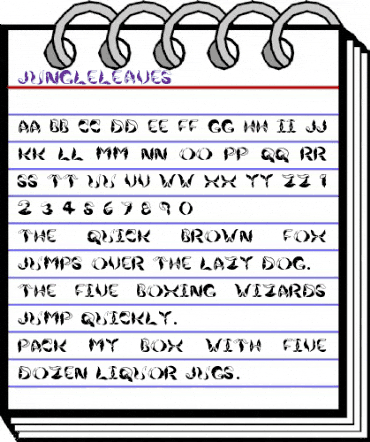 JUNGLELEAVES
AA BB CC DD EE FF GG HH II JJ
KK LL MM NN OO PP QQ RR
SS TT UU VV WW XX YY ZZ 1
2 3 4 5 6 7 8 9 0
THE QUICK BROWN FOX
JUMPS OVER THE LAZY DOG.
THE FIVE BOXING WIZARDS
JUMP QUICKLY.
PACK MY BOX WITH FIVE
DOZEN LIQUOR JUGS.